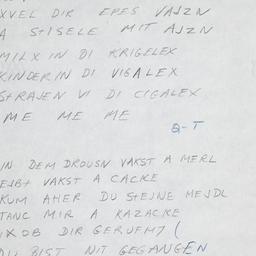 XVEL DIR EPES VAJZN
A STISELE MIT AJZN
MILX IN DI KRIGELEX
KINDER IN DI VIGALEX
STRAJEN VI DI CIGALEX
ME ME ME
Q-T
IN DEM DROUSN VAKST A MERL
EJBT VAKST A CACKE
KUM AHER DU STEJNE MEJDL
TANC MIR A KAZACKE
IX OB DIR GERUFM7 (
DU BIST NIT GEGANGEN